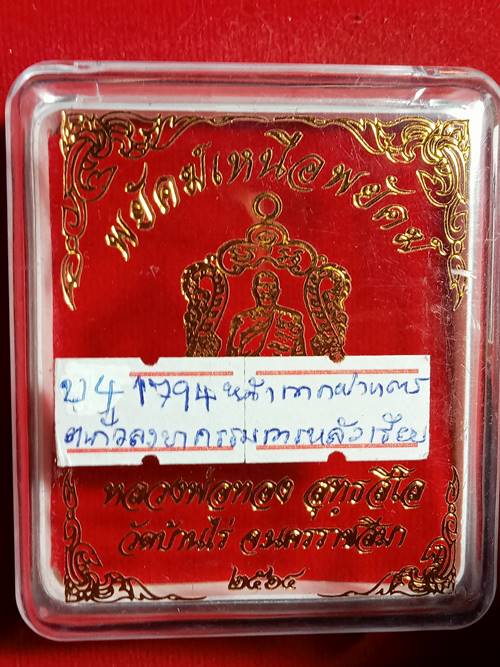 พยัคฆ์เหนือพยัคฆ์
1794 หน้ากากฝาบาตร
ตะกั่วลงยากรรมการหลังเรียบ
หลวงพ่อทอง สุทธสีโล
วัดบ้านไร่ จ.นครราชสีมา
๒๕๖๔